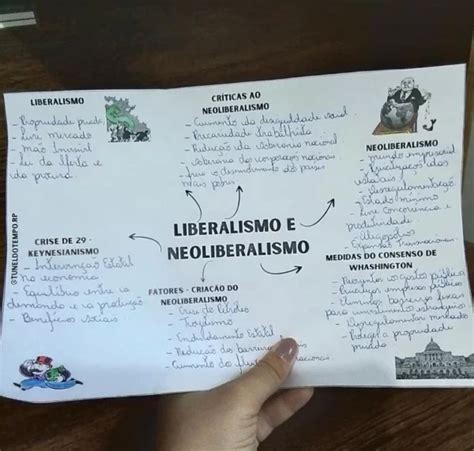 LIBERALISMO
- Propriedade privada
- Livre mercado
- Mão Invisível
- Lei da oferta e
da procura.
CRÍTICAS AO
NEOLIBERALISMO
- Aumento da desigualdade social
- Precariedade Trabalhista
- Redução da soberania nacional
- soberania das corporações
para o desenvolvimento dos países
mais pobres
NEOLIBERALISMO
- mundo empresarial
- dos
estatais
- Desregulamentação
- Estado mínimo
- Livre Concorrência e
produtividade
- Oligopólios
- Expansão Transnacionais
LIBERALISMO E
NEOLIBERALISMO
@TUNELDOTEMPO.RP
CRISE DE 29 -
KEYNESIANISMO
- Intervenção Estatal
na economia
- Equilíbrio entre a
demanda e a produção
- Benefícios sociais
FATORES - CRIAÇÃO DO
NEOLIBERALISMO
- Crise do Petróleo
- Toyotismo
- Endividamento Estatal
- Redução das barreiras
- Aumento do
MEDIDAS DO CONSENSO DE
WHASHINGTON
- o gasto público
- empresas públicas
- Eliminar barreiras fiscais
para investimentos estrangeiros
- Desregulamentar mercado
- Proteger a propriedade
privada